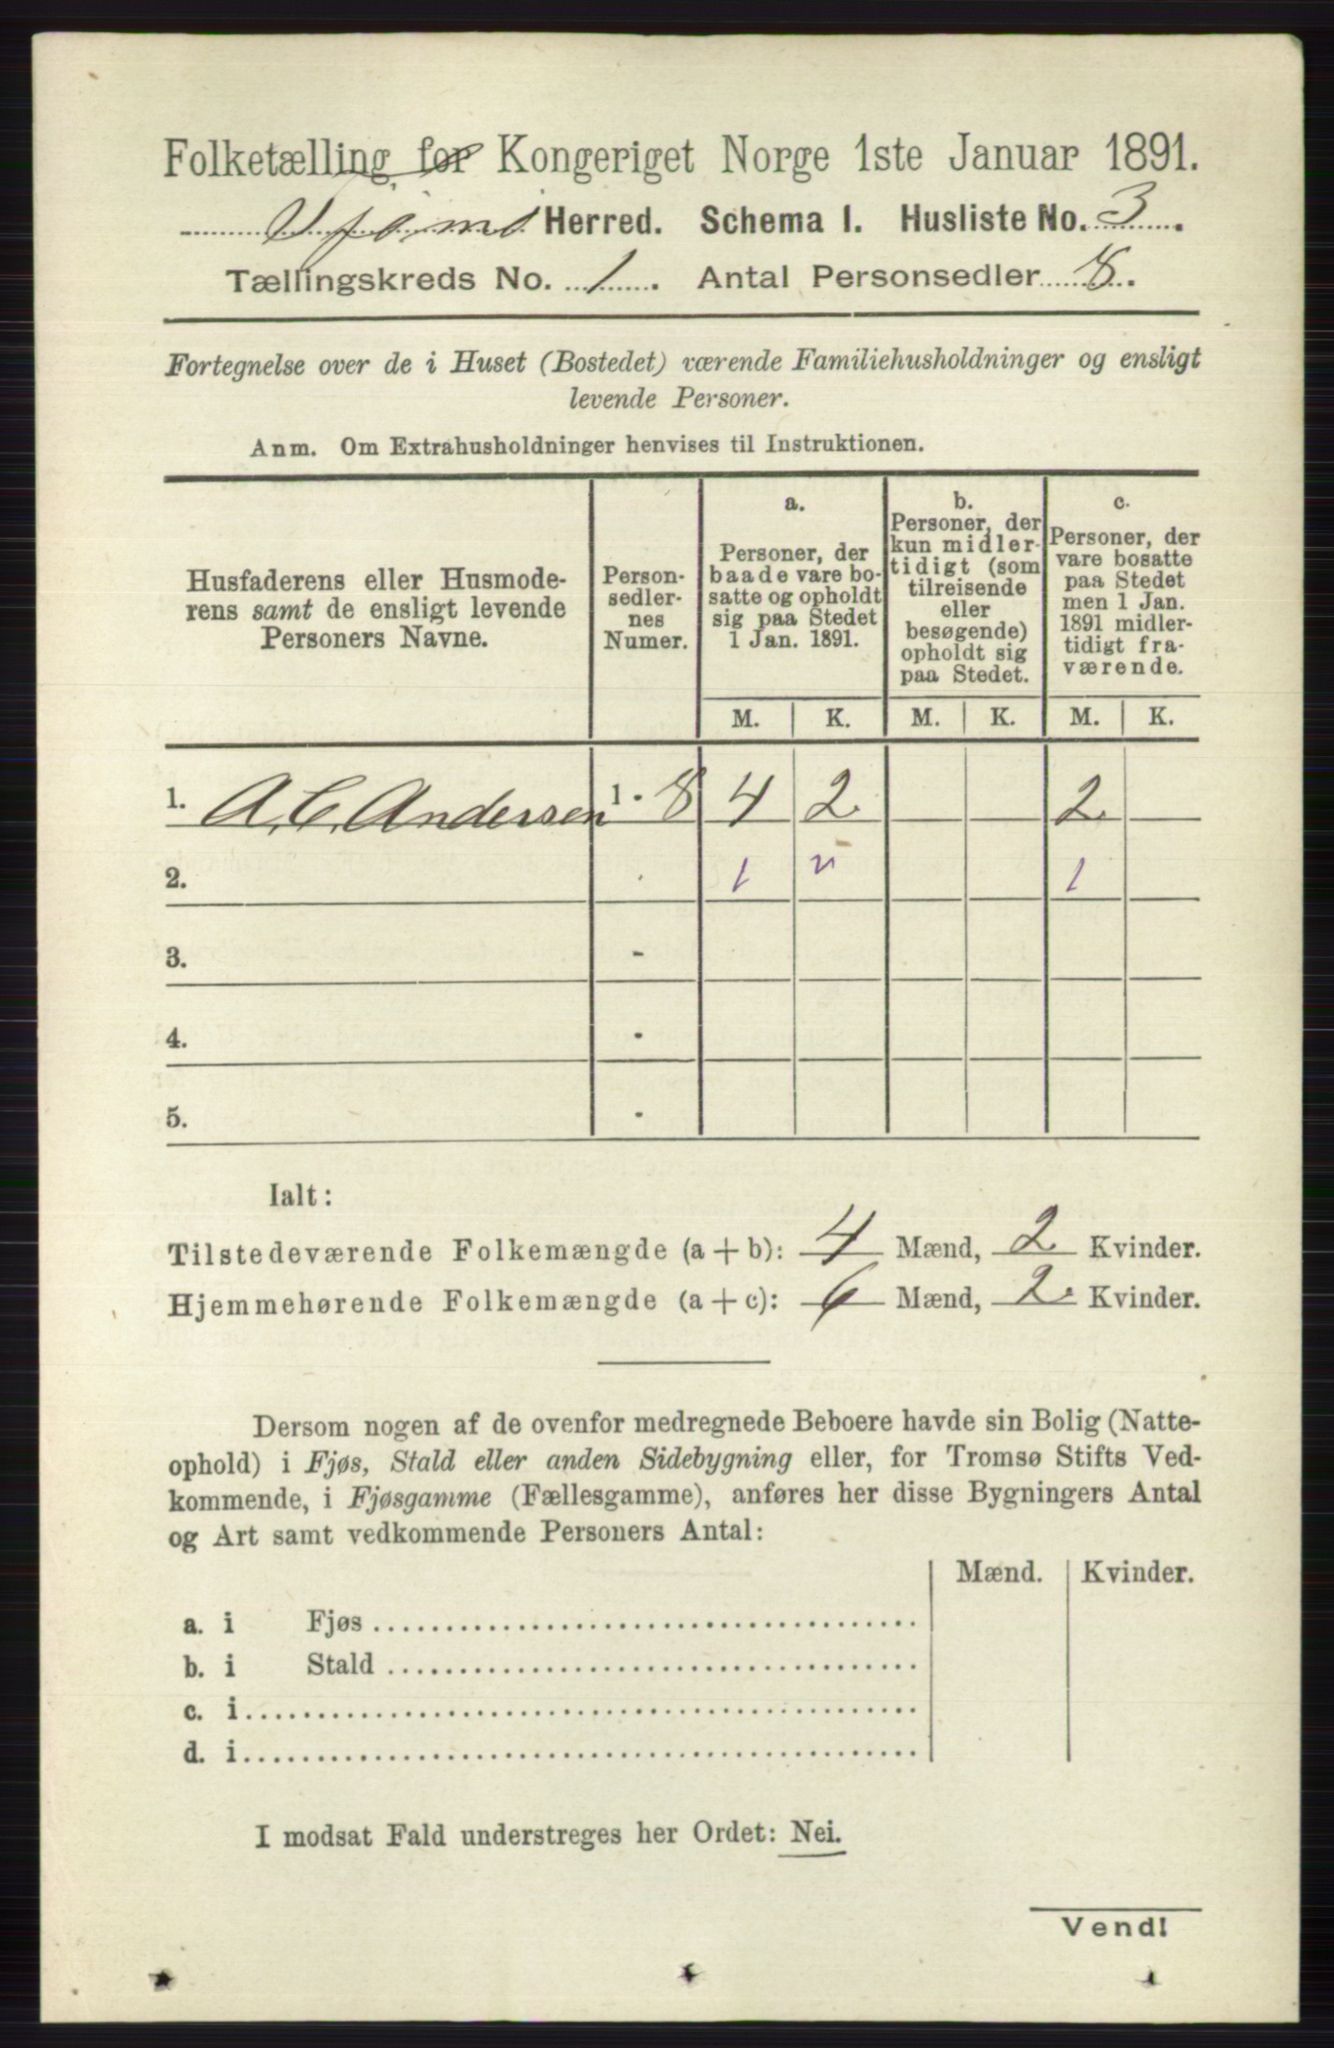 Folketælling for Kongeriget Norge 1ste Januar 1891.
Herred. Schema I. Husliste No. 3.
Tællingskreds No. 1. Antal Personsedler 8.
Fortegnelse over de i Huset (Bostedet) værende Familiehusholdninger og ensligt
levende Personer.
Anm. Om Extrahusholdninger henvises til Instruktionen.
Husfaderens eller Husmode-
rens samt de ensligt levende
Personers Navne.
Person-
sedler-
nes
Numer.
a.
Personer, der
baade vare bo-
satte og opholdt
sig paa Stedet
1 Jan. 1891.
b.
Personer, der
kun midler-
tidigt (som
tilreisende
eller
besøgende)
opholdt sig
paa Stedet.
c.
Personer, der
vare bosatte
paa Stedet
men 1 Jan.
1891 midler-
tidigt fra-
værende.
M. K. M. K. M. K.
1. A. C. Andersen 1 - 8 4 2 2
2. 1 1
3. -
4. -
5. -
Ialt:
Tilstedeværende Folkemængde (a + b): 4 Mænd, 2 Kvinder.
Hjemmehørende Folkemængde (a + c): 6 Mænd, 2. Kvinder.
Dersom nogen af de ovenfor medregnede Beboere havde sin Bolig (Natte-
ophold) i Fjøs, Stald eller anden Sidebygning eller, for Tromsø Stifts Ved-
kommende, i Fjøsgamme (Fællesgamme), anføres her disse Bygningers Antal
og Art samt vedkommende Personers Antal:
Mænd. Kvinder.
a. i Fjøs
b. i Stald
c. i
d. i
I modsat Fald understreges her Ordet: Nei.
Vend!